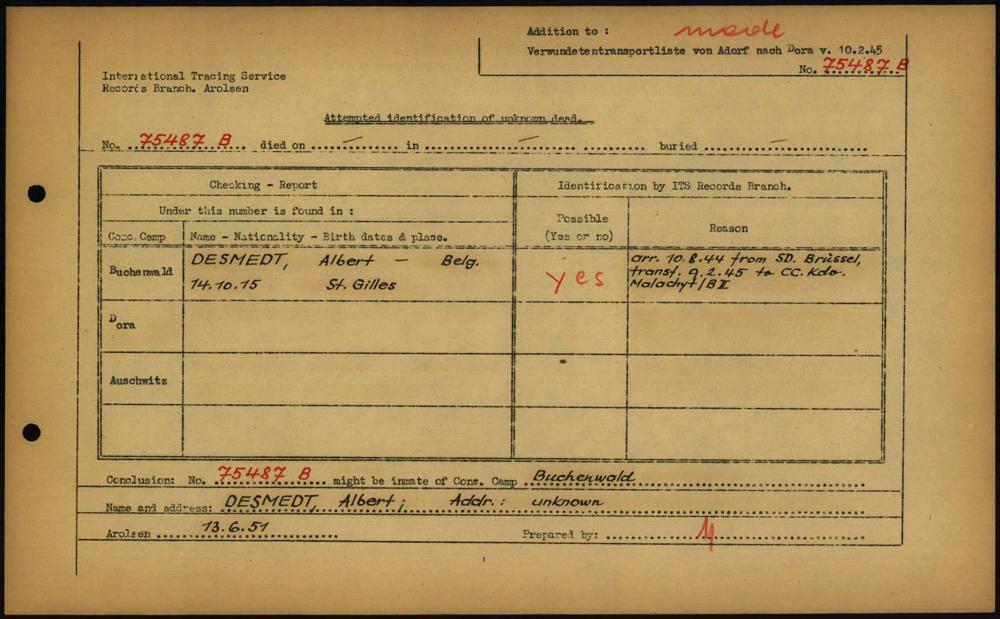 Addition to : made
Verwundetentransportliste von Adorf nach Dora v. 10.2.45
No. 75487 B
International Tracing Service
Records Branch. Arolsen
Attempted identification of unknown dead.
No. 75487 B died on ..... — ..... in ..... — ..... buried ..... — .....
Checking - Report
Identification by ITS Records Branch.
Under this number is found in :
Possible
(Yes or no)
Reason
Conc. Camp
Name - Nationality - Birth dates & place.
Buchenwald
DESMEDT, Albert — Belg.
14.10.15 St. Gilles
yes
arr. 10.8.44 from SD. Brüssel,
transf. 9.2.45 to CC. Kdo.
Malachyt/BII
Dora
Auschwitz
Conclusion: No. 75487 B might be inmate of Conc. Camp Buchenwald
Name and address: DESMEDT, Albert; Addr.: unknown
Arolsen 13.6.51 Prepared by: